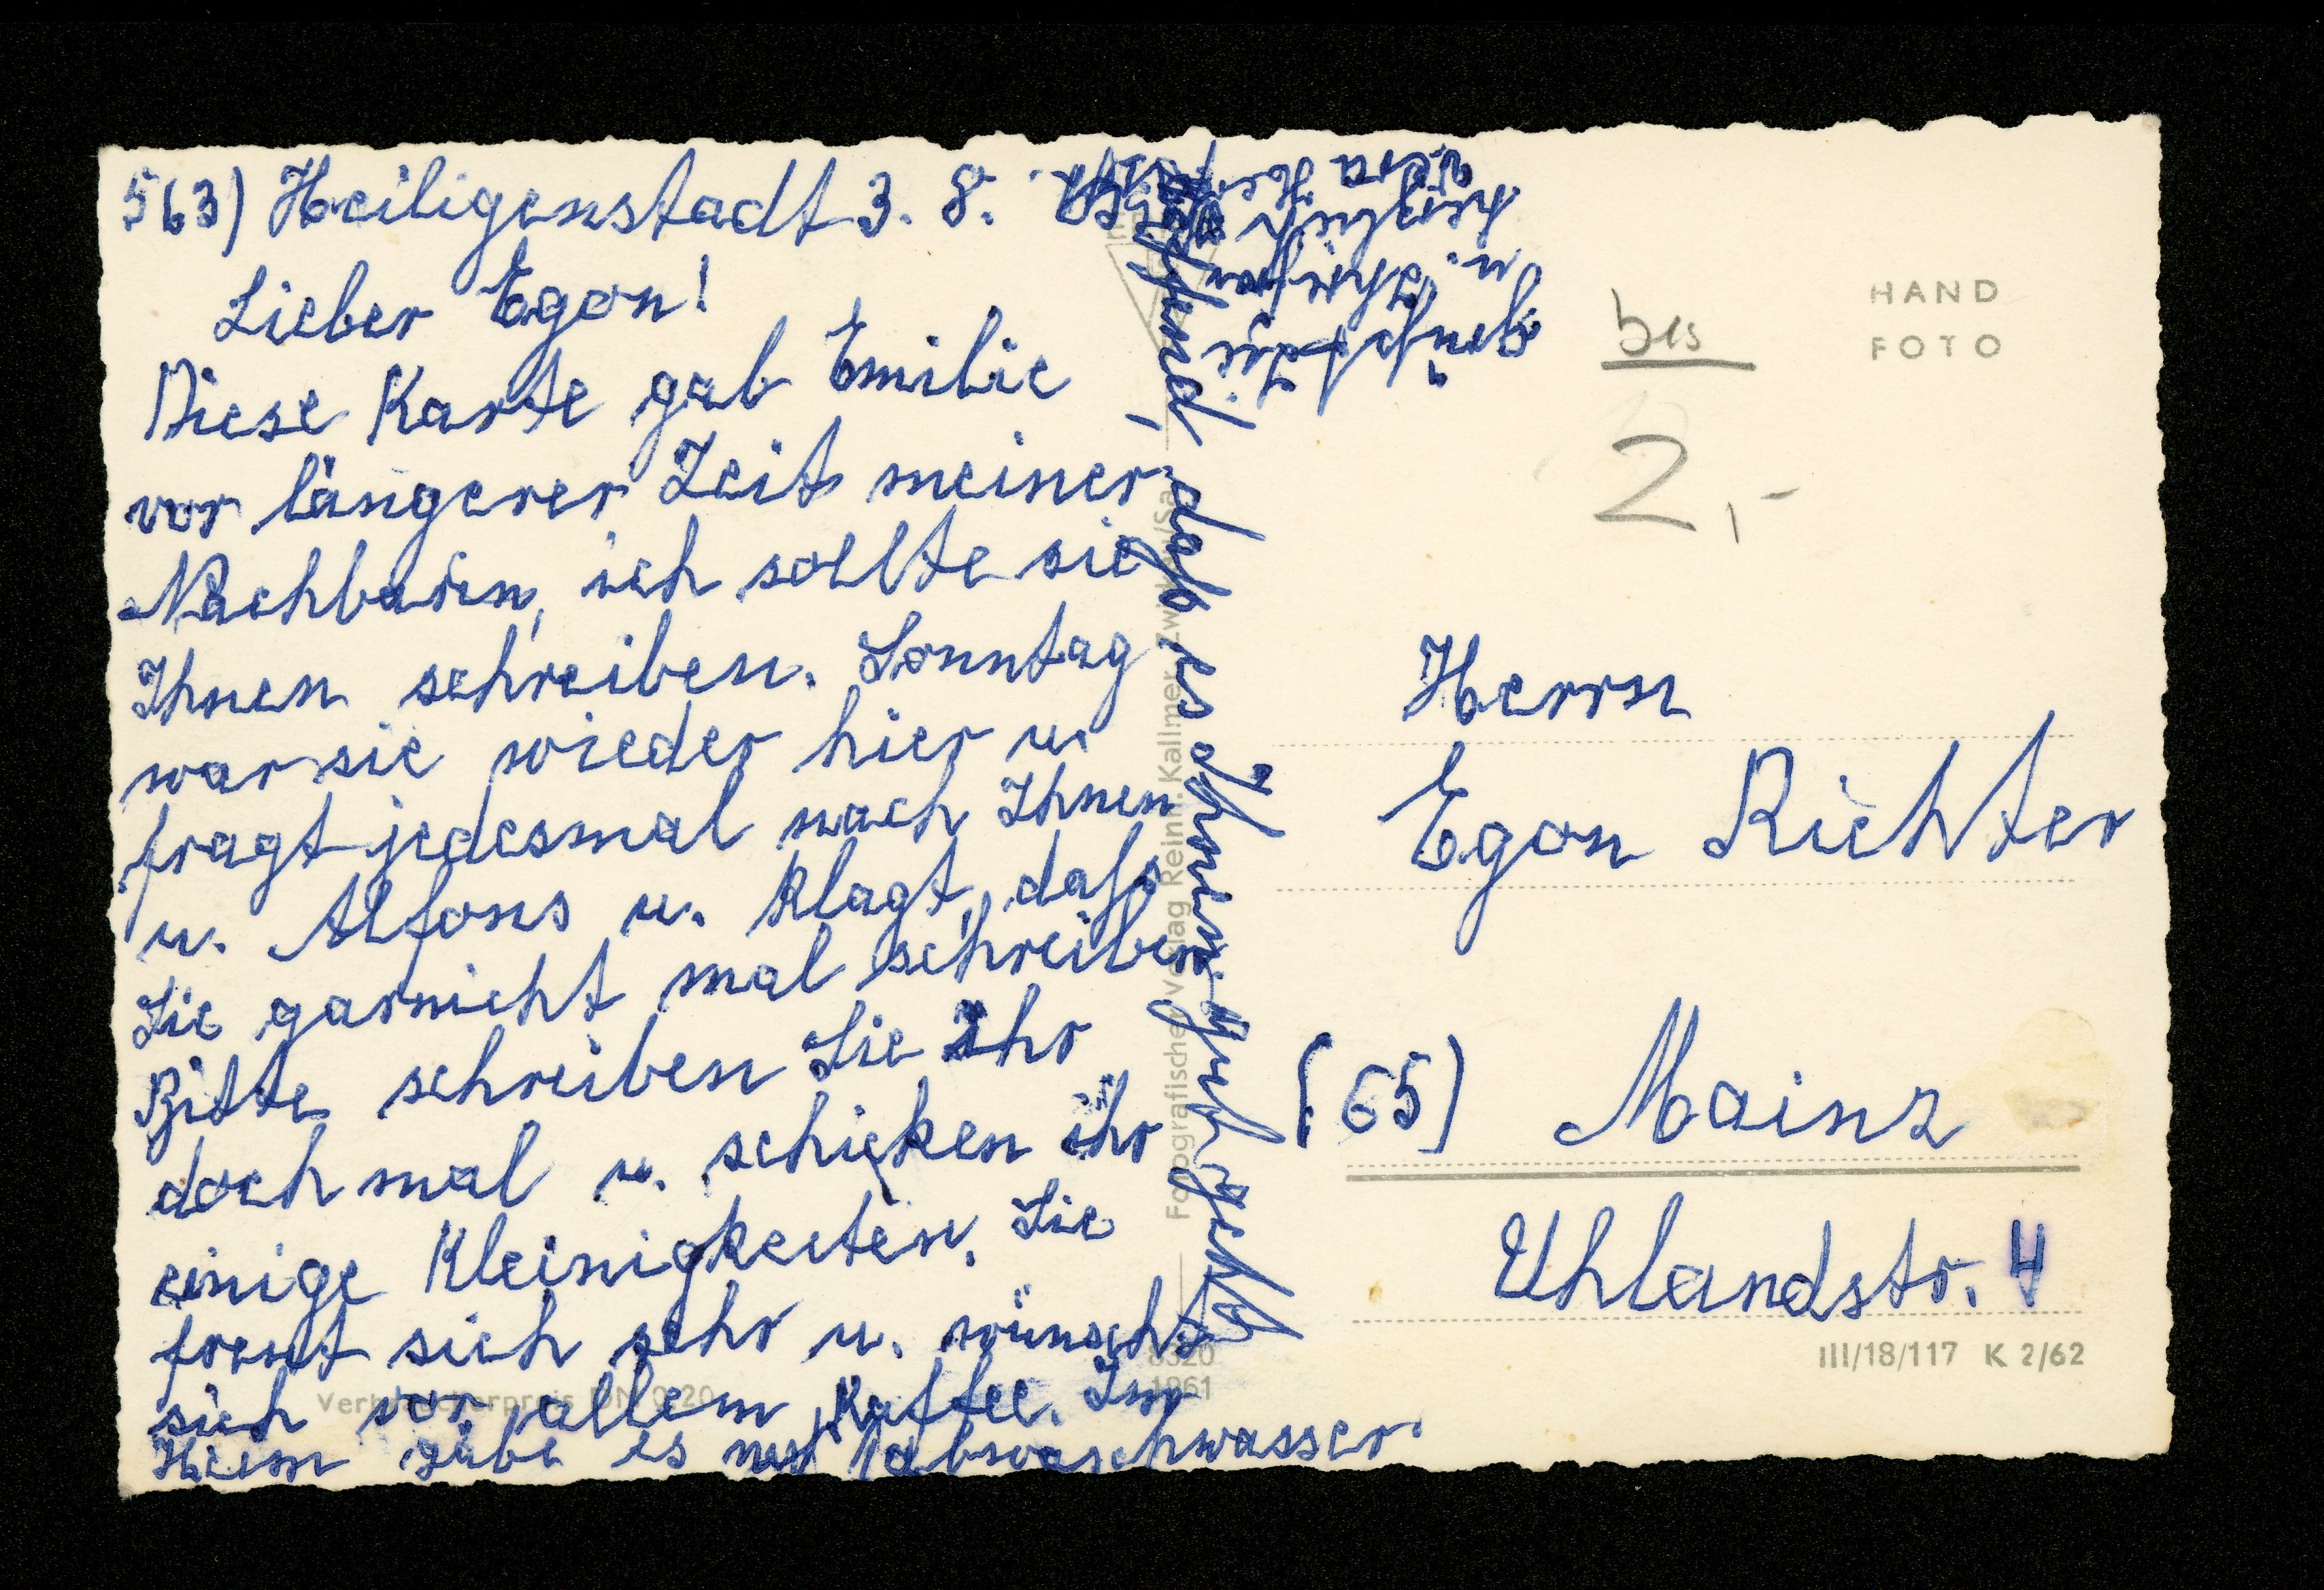 563) Heiligenstadt 3. 8.
Lieber Egon!
Diese Karte gab Emilie
vor längerer Zeit meiner
Nachbarin, ich sollte sie
Ihnen schreiben. Sonntag
war sie wieder hier u.
fragt jedesmal nach Ihnen
u. Alfons u. klagt, daß
Sie garnicht mal schreiben.
Bitte schreiben Sie ihr
doch mal u. schicken ihr
einige Kleinigkeiten. Sie
freut sich sehr u. wünscht
sich vor allem Kaffee. Im
Heim gäbe es nur Abwaschwasser.
Hoffe, daß es Ihnen gut geht
grüßt Sie
u.
herzlich
Vera
HAND
FOTO
bis
2,-
Herrn
Egon Richter
(65) Mainz
Uhlandstr. 4
III/18/117 K 2/62
Fotografischer Verlag Reinh. Kallmer, Zwickau/Sa.
Verbraucherpreis DM 0,20
8320
1961